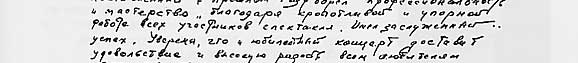 профессионализм
и мастерство, благодаря кропотливой и упорной
работе всех участников спектакля. Имел заслуженный
успех. Уверен, что и юбилейный концерт доставит
удовольствие и высокую радость всем любителям